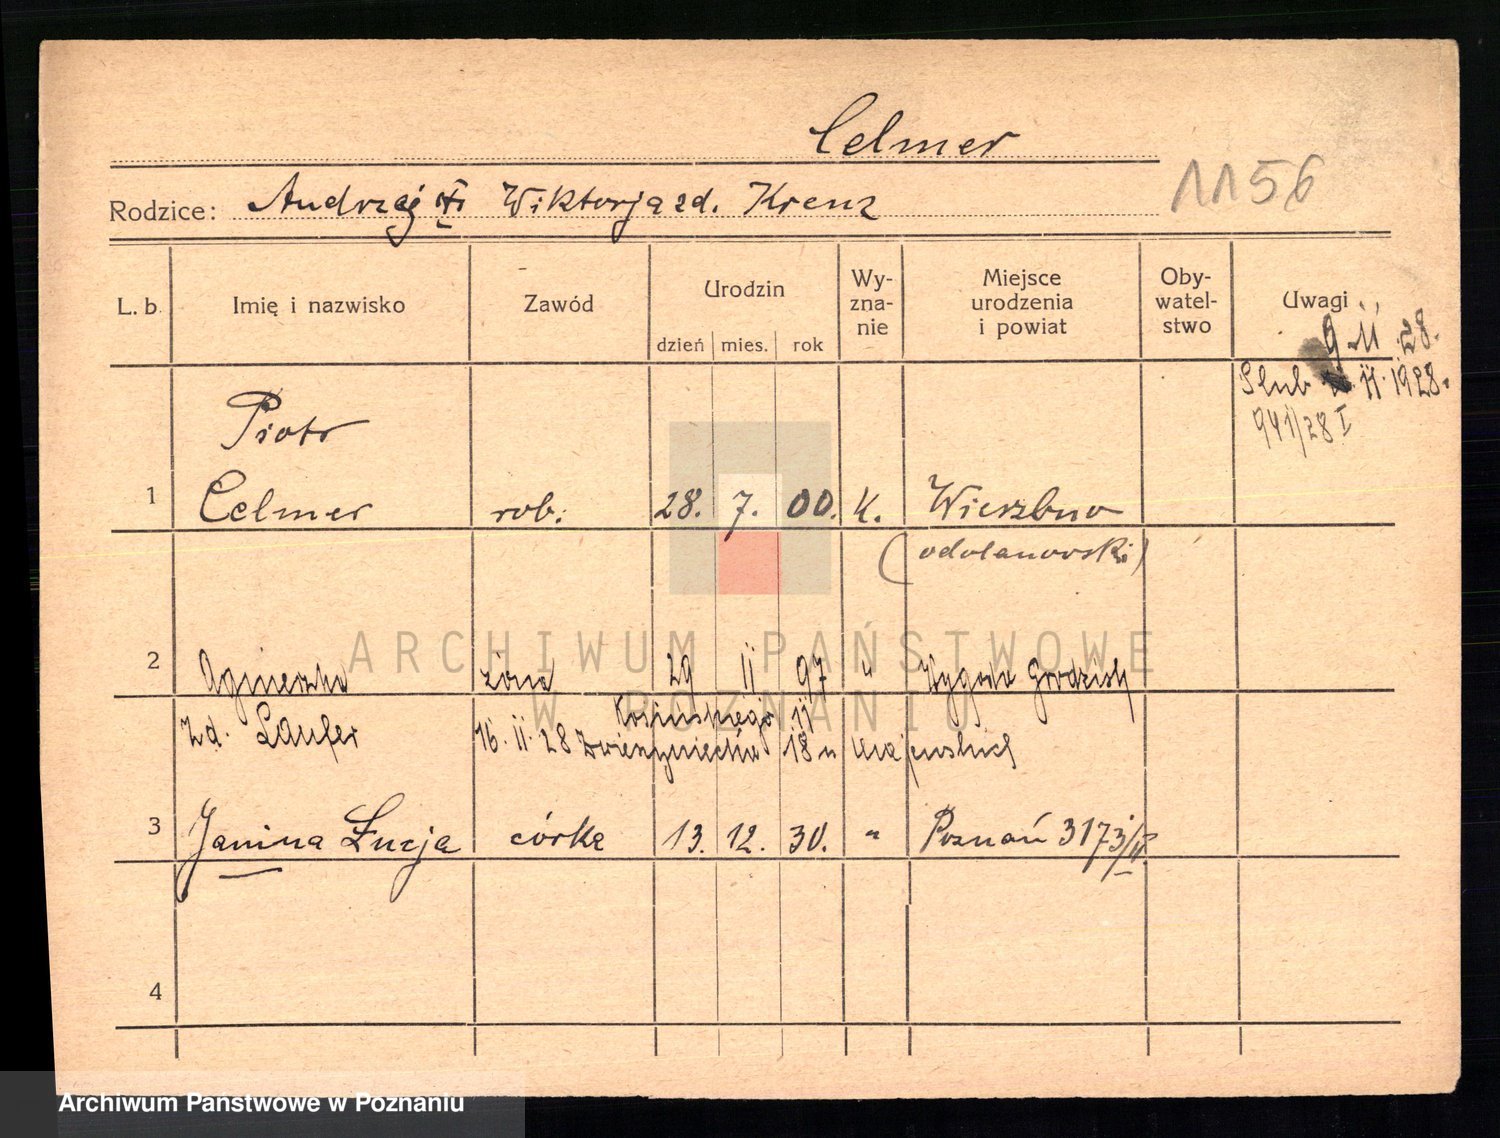 Celmer
1156
Rodzice: Andrzej Wiktorja zd. Krenz
L. b. Imię i nazwisko Zawód Urodzin dzień mies. rok Wyznanie Miejsce urodzenia i powiat Obywatelstwo Uwagi
9 II 28.
Ślub II. 1928.
941/28 I
Piotr
1 Celmer rob. 28. 7. 00. K. Wierzbno
(odolanowski)
2 Agnieszka żona 29 II 97 " Wygoda Grodzisk
Kosińskiego 11
zd. Laufer 16. II. 28 Zwierzyniecka 18 u Majewskich
3 Janina Łucja córka 13. 12. 30. " Poznań 3173/IV.
4
ARCHIWUM PAŃSTWOWE
W POZNANIU
Archiwum Państwowe w Poznaniu